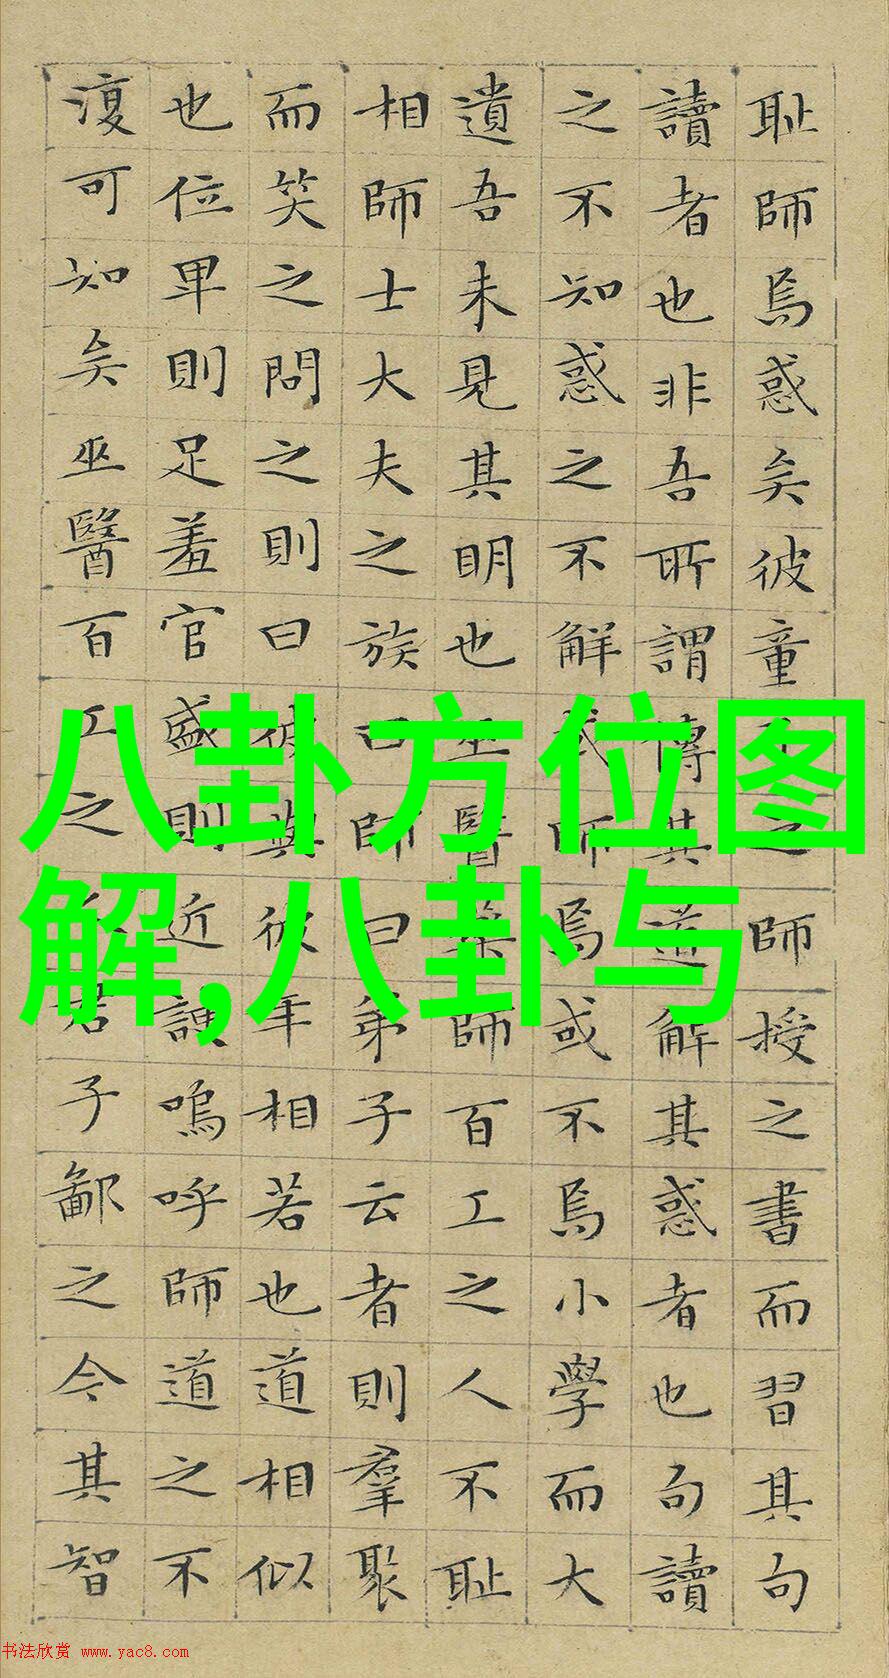 耻師焉惑矣彼童之師授之書而習其句
讀者也非吾所謂傳其道解其惑者也句讀
之不知惑之不解或師焉或不焉小學而大
遺吾未見其明也巫醫樂師百工之人不耻
相師士大夫之族曰師曰弟子云者則羣聚
而笑之問之則曰彼與彼年相若也道相似
也位卑則足羞官盛則近諛嗚呼師道之不
復可知矣巫醫百工之君子鄙之今其智
八卦方位图
解,八卦与
书法欣赏 www.yac8.com